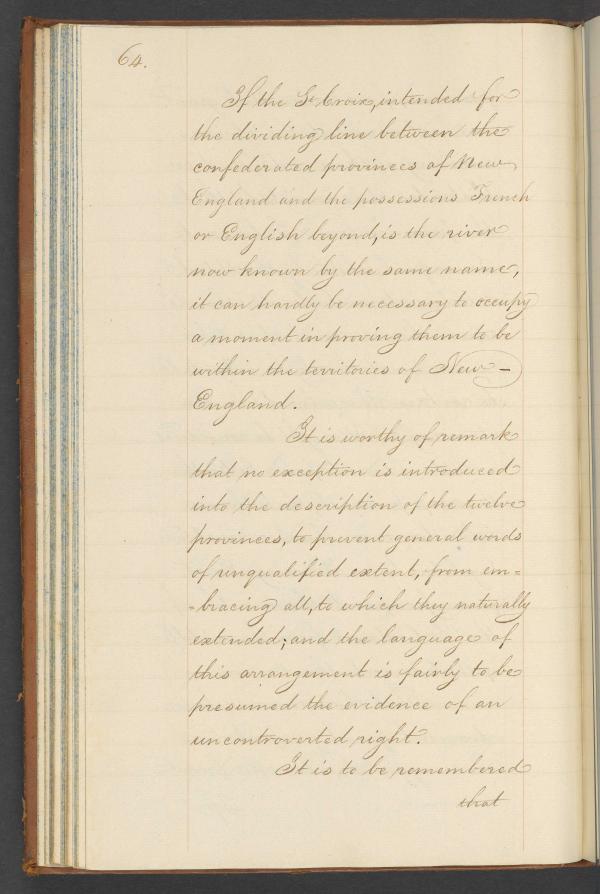 64.
If the St. Croix, intended for
the dividing line between the
confederated provinces of New
England and the possessions French
or English beyond, is the river
now known by the same name,
it can hardly be necessary to occupy
a moment in proving them to be
within the territories of New-
England.
It is worthy of remark
that no exception is introduced
into the description of the twelve
provinces, to prevent general words
of unqualified extent, from em=
-bracing all, to which they naturally
extended; and the language of
this arrangement is fairly to be
presumed the evidence of an
uncontroverted right.
It is to be remembered
that